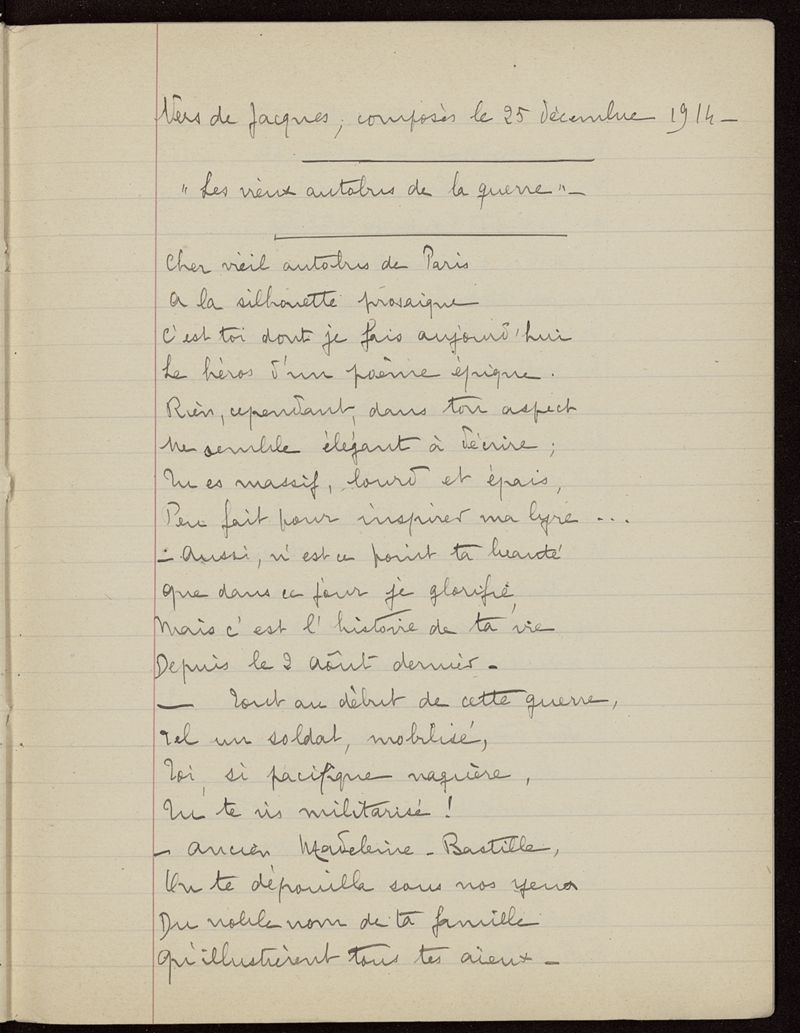 Vers de Jacques, composés le 25 décembre 1914 –
"Les vieux autobus de la guerre" –
Cher vieil autobus de Paris
A la silhouette prosaïque
C'est toi dont je fais aujourd'hui
Le héros d'un poème épique.
Rien, cependant, dans ton aspect
Ne semble élégant à décrire ;
Tu es massif, lourd et épais,
Peu fait pour inspirer ma lyre ...
– Aussi, n'est ce point ta beauté
Que dans ce jour je glorifie,
Mais c'est l'histoire de ta vie
Depuis le 2 Août dernier –
– Tout au début de cette guerre,
Tel un soldat, mobilisé,
Toi, si pacifique naguère,
Tu te vis militarisé !
– Ancien Madeleine - Bastille,
On te dépouilla sous nos yeux
Du noble nom de ta famille
Qu'illustrèrent tous tes aïeux –